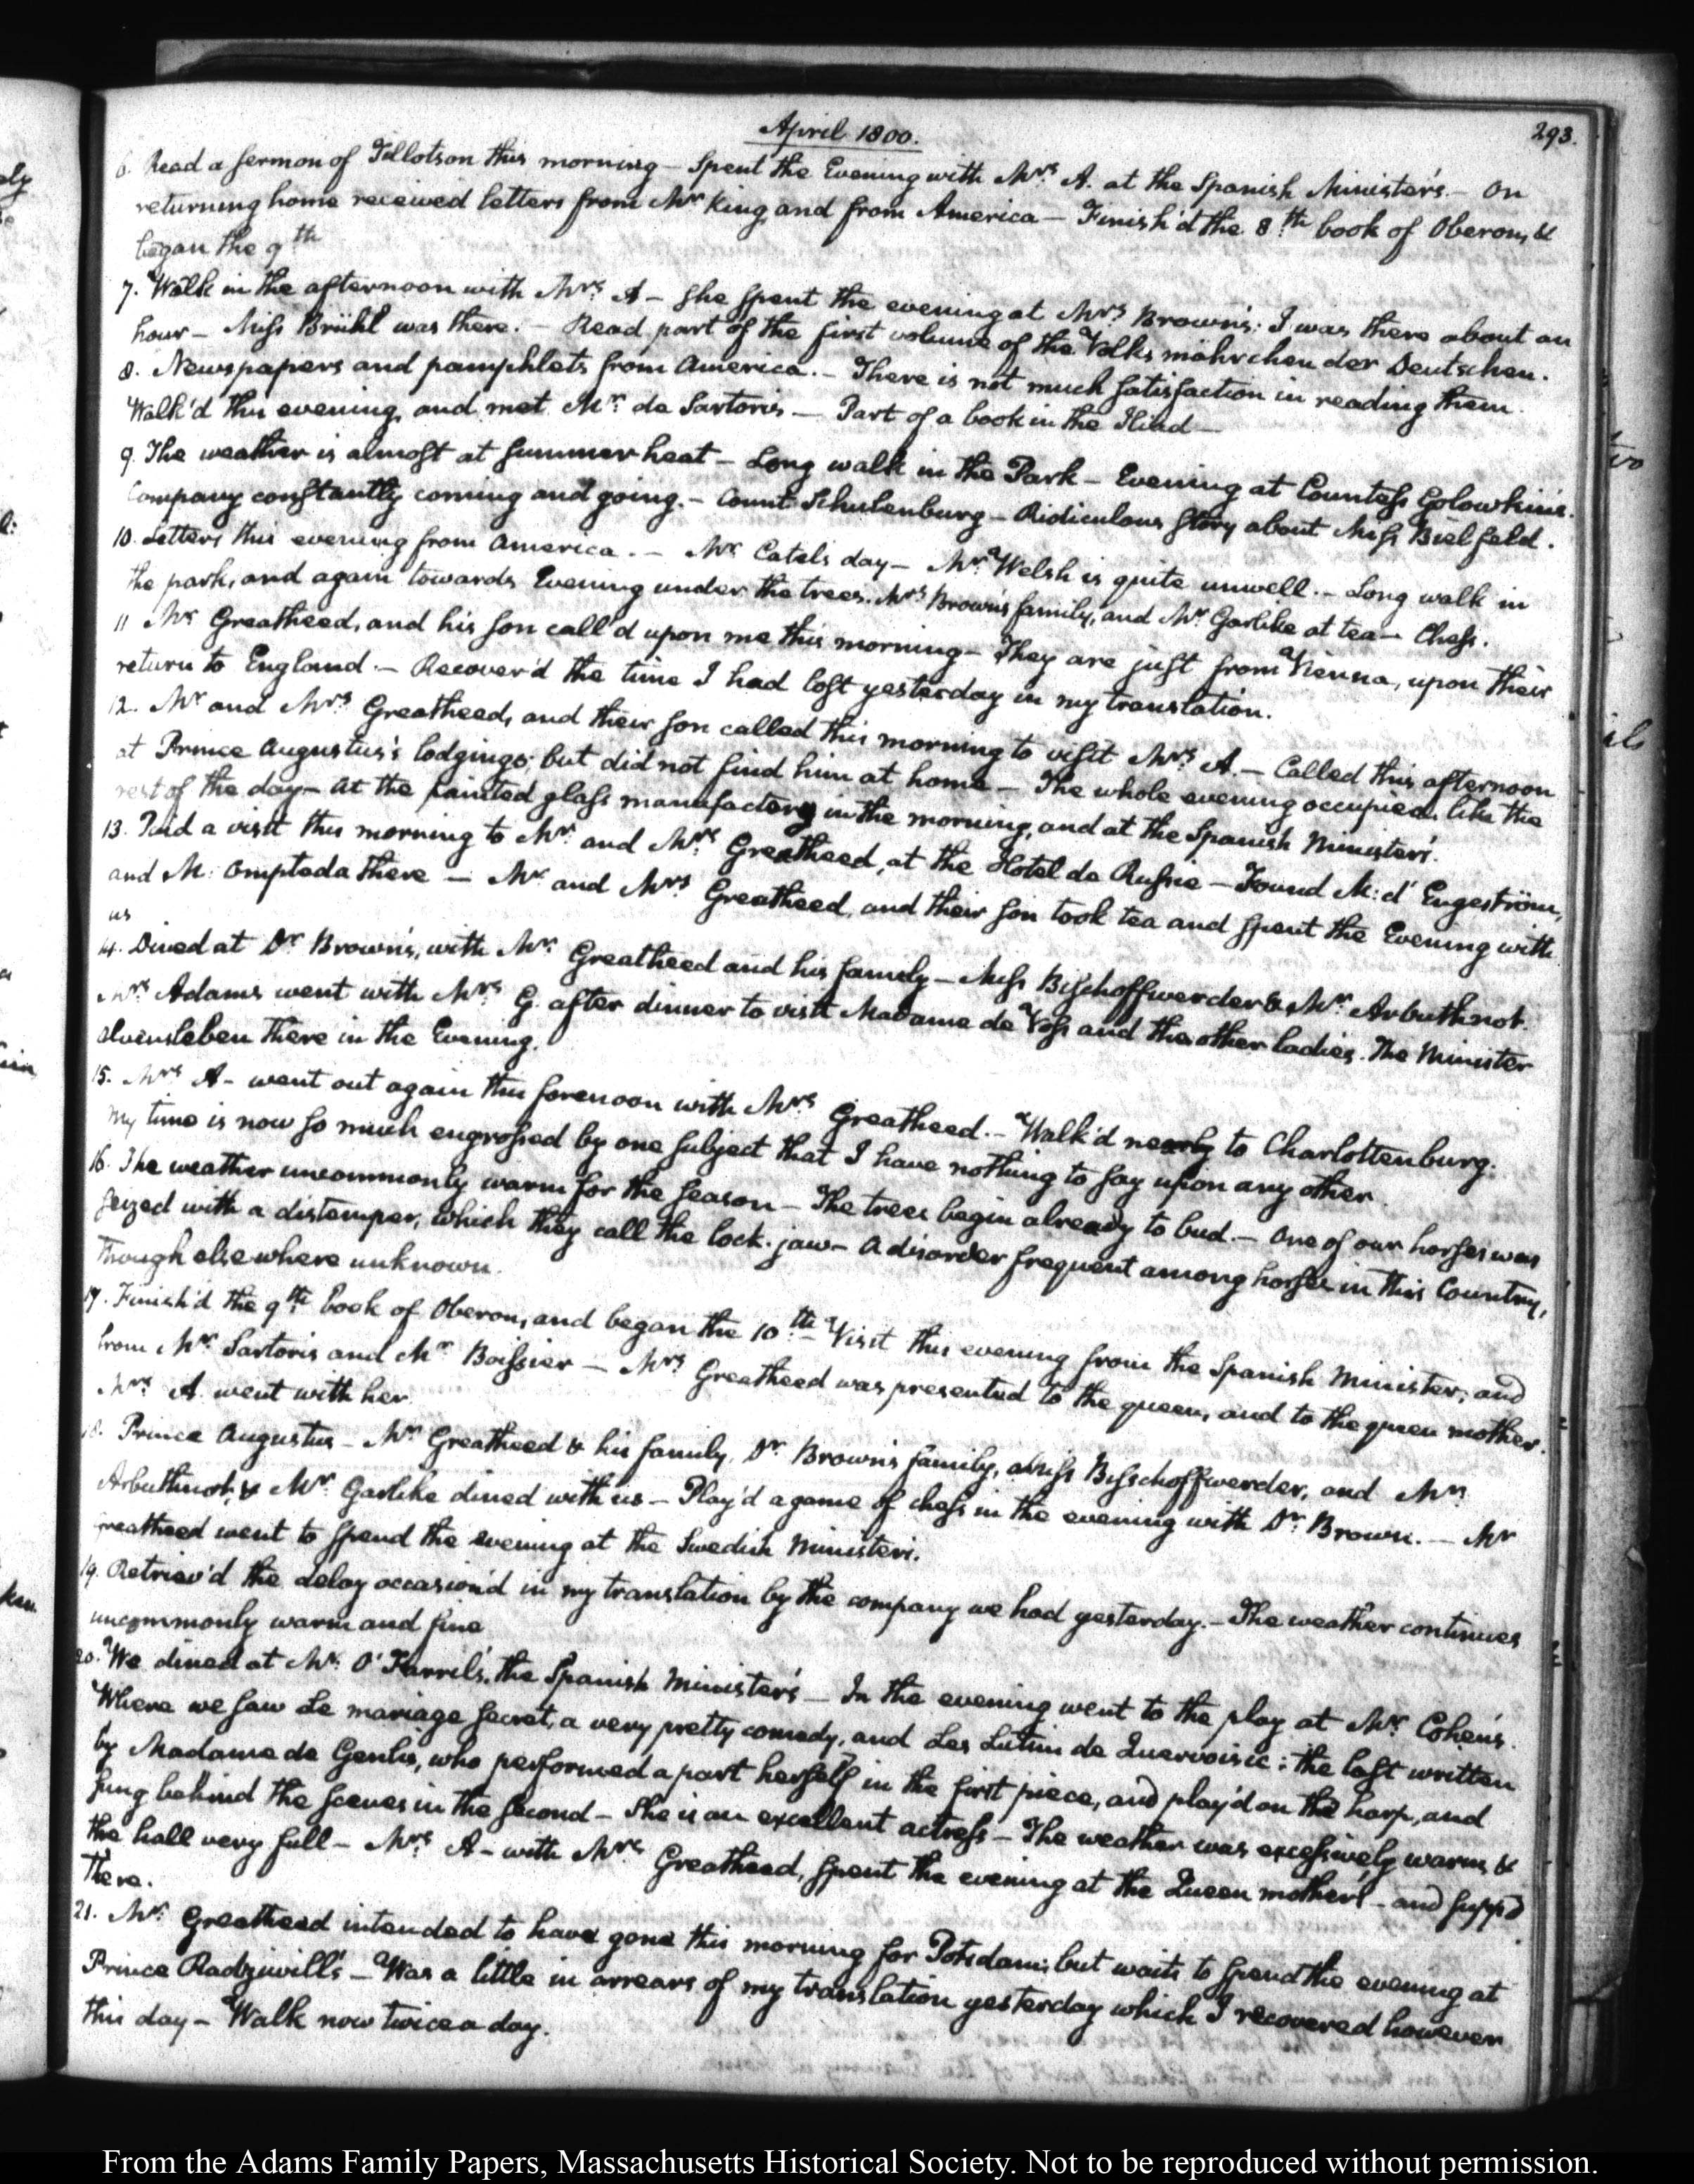 April 1800.
293.
6. Read a sermon of Tillotson this morning — Spent the Evening with Mrs. A. at the Spanish Minister's. — On
returning home received letters from Mr King, and from America — Finish'd the 8th. book of Oberon, &
began the 9th
7. Walk in the afternoon with Mrs. A — She spent the evening at Mrs. Brown's: I was there about an
hour — Miss Brühl was there. — Read part of the first volume of the Volks mährchen der Deutschen.
8. Newspapers and pamphlets from America. — There is not much satisfaction in reading them.
Walk'd this evening, and met Mr. de Sartoris — Part of a book in the Iliad —
9. The weather is almost at summer heat — Long walk in the Park — Evening at Countess Golowkin's.
Company constantly coming and going. — Count Schulenburg — Ridiculous story about Miss Bielfeld.
10. Letters this evening from America. — Mr. Catel's day — Mr. Welsh is quite unwell. — Long walk in
the park, and again towards Evening under the trees. Mrs. Brown's family, and Mr. Garlike at tea — Chess.
11 Mr. Greatheed, and his son call'd upon me this morning — They are just from Vienna, upon their
return to England. — Recover'd the time I had lost yesterday in my translation.
12. Mr and Mrs. Greatheed, and their son called this morning to visit Mrs. A. — Called this afternoon
at Prince Augustus's lodgings; but did not find him at home — The whole evening occupied, like the
rest of the day — At the painted glass manufactory in the morning, and at the Spanish Minister's.
13. Paid a visit this morning to Mr. and Mrs. Greatheed, at the Hotel de Russie — Found M: d'Engeström,
and M: Ompteda there — Mr. and Mrs Greatheed, and their son took tea and spent the Evening with
us
14. Dined at Dr. Brown's, with Mr. Greatheed and his family — Miss Bischoffwerder & Mr. Arbuthnot.
Mrs. Adams went with Mrs. G. after dinner to visit Madame de Voss and the other ladies. The Minister
Alvensleben there in the Evening.
15. Mrs. A — went out again this forenoon with Mrs. Greatheed. — Walk'd nearly to Charlottenburg.
My time is now so much engrossed by one subject that I have nothing to say upon any other.
16. The weather uncommonly warm for the season — The trees begin already to bud. — One of our horses was
seized with a distemper, which they call the lock-jaw — A disorder frequent among horses in this Country,
though elsewhere unknown.
17. Finish'd the 9th. book of Oberon, and began the 10th. — Visit this evening from the Spanish Minister; and
from Mr. Sartoris and Mr. Boissier — Mrs Greatheed was presented to the queen, and to the queen mother.
Mrs. A. went with her
18. Prince Augustus — Mr. Greatheed & his family, Dr. Brown's family, Miss Bisschoffwerder, and Mr.
Arbuthnot, & Mr. Garlike dined with us — Play'd a game of chess in the evening with Dr. Brown. — Mr
Greatheed went to spend the evening at the Swedish Minister's.
19. Retriev'd the delay occasion'd in my translation by the company we had yesterday. — The weather continues
uncommonly warm and fine
20. We dined at Mr. O'Farril's, the Spanish Minister's — In the evening went to the play at Mr. Cohen's.
Where we saw Le mariage secret, a very pretty comedy, and Les Lutins de : the last written
by Madame de Genlis, who performed a part herself in the first piece, and play'd on the harp, and
sung behind the scenes in the second — She is an excellent actress — The weather was excessively warm, &
the hall very full — Mrs A — with Mrs. Greatheed, spent the evening at the Queen mother's — and supp'd
there.
21. Mr. Greatheed intended to have gone this morning for Potsdam; but waits to spend the evening at
Prince Radziwill's — Was a little in arrears of my translation yesterday which I recovered however
this day — Walk now twice a day.
From the Adams Family Papers, Massachusetts Historical Society. Not to be reproduced without permission.